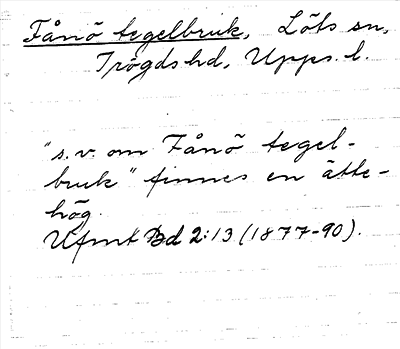 Fånö tegelbruk, Löts sn,
Trögds hd, Upps. l.
"s.v. om Fånö tegel-
bruk" finnes en ätte-
hög.
Ufmt Bd 2:13 (1877-90).